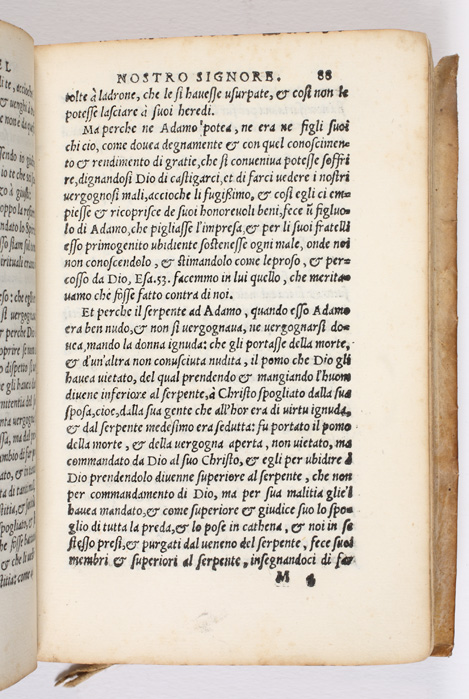 NOSTRO SIGNORE. 88
tolte à ladrone, che le si havesse usurpate, & cosi non le
potesse lasciare à suoi heredi.
Ma perche ne Adamo potea, ne era ne figli suoi
chi cio, come dovea degnamente & con quel conoscimen-
to & rendimento di gratie, che si conveniva potesse soffri
re, dignandosi Dio di castigarci, et di farci vedere i nostri
vergognosi mali, accioche li fugißimo, & cosi egli ci em-
piesse & ricoprisce de suoi honorevoli beni, fece ũ figluo-
lo di Adamo, che pigliasse l'impresa, & per li suoi fratelli
esso primogenito ubidiente sostenesse ogni male, onde noi
non conoscendolo, & stimandolo come leproso, & per-
cosso da Dio, Esa. 53. facemmo in lui quello, che merita-
vamo che fósse fatto contra di noi.
Et perche il serpente ad Adamo, quando esso Adamo
era ben nudo, & non si vergognava, ne vergognarsi do-
vea, mando la donna ignuda: che gli portasse della morte,
& d'un'altra non conusciuta nudita, il pomo che Dio gli
havea vietato, del qual prendendo & mangiando l'huom
divene inferiore al serpente, à Christo spogliato dalla sua
sposa, cioe, dalla sua gente che all'hor era di virtu ignuda,
& dal serpente medesimo era sedutta: fu portato il pomo
della morte, & della vergogna aperta, non vietato, ma
commandato da Dio al suo Christo, & egli per ubidire à
Dio prendendolo divenne superiore al serpente, che non
per commandamento di Dio, ma per sua malitia glie l
havea mandato, & come superiore & giudice suo lo spo-
glio di tutta la preda, & lo pose in cathena, & noi in se
stesso presi, & purgati dal veneno del serpente, fece suoi
membri & superiori al serpente, insegnandoci di far
M